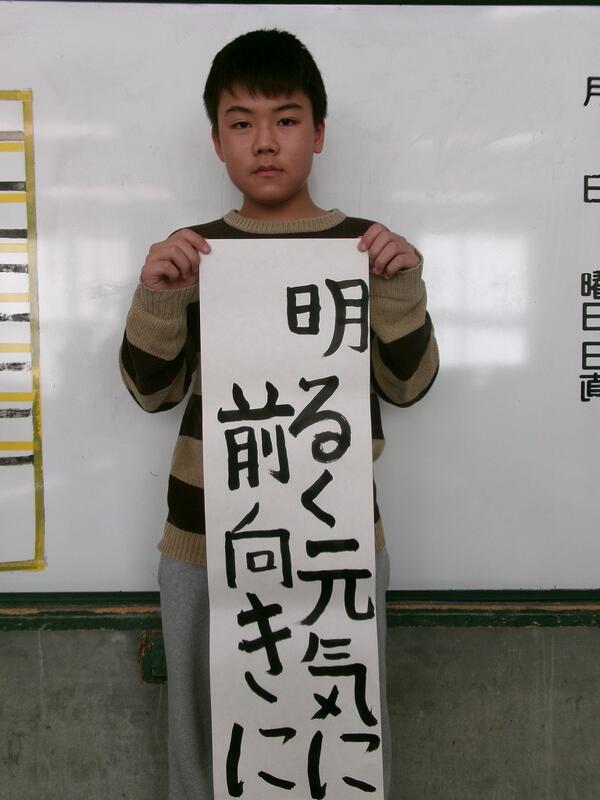 明るく元気に
前向きに
月
日
曜日
日直